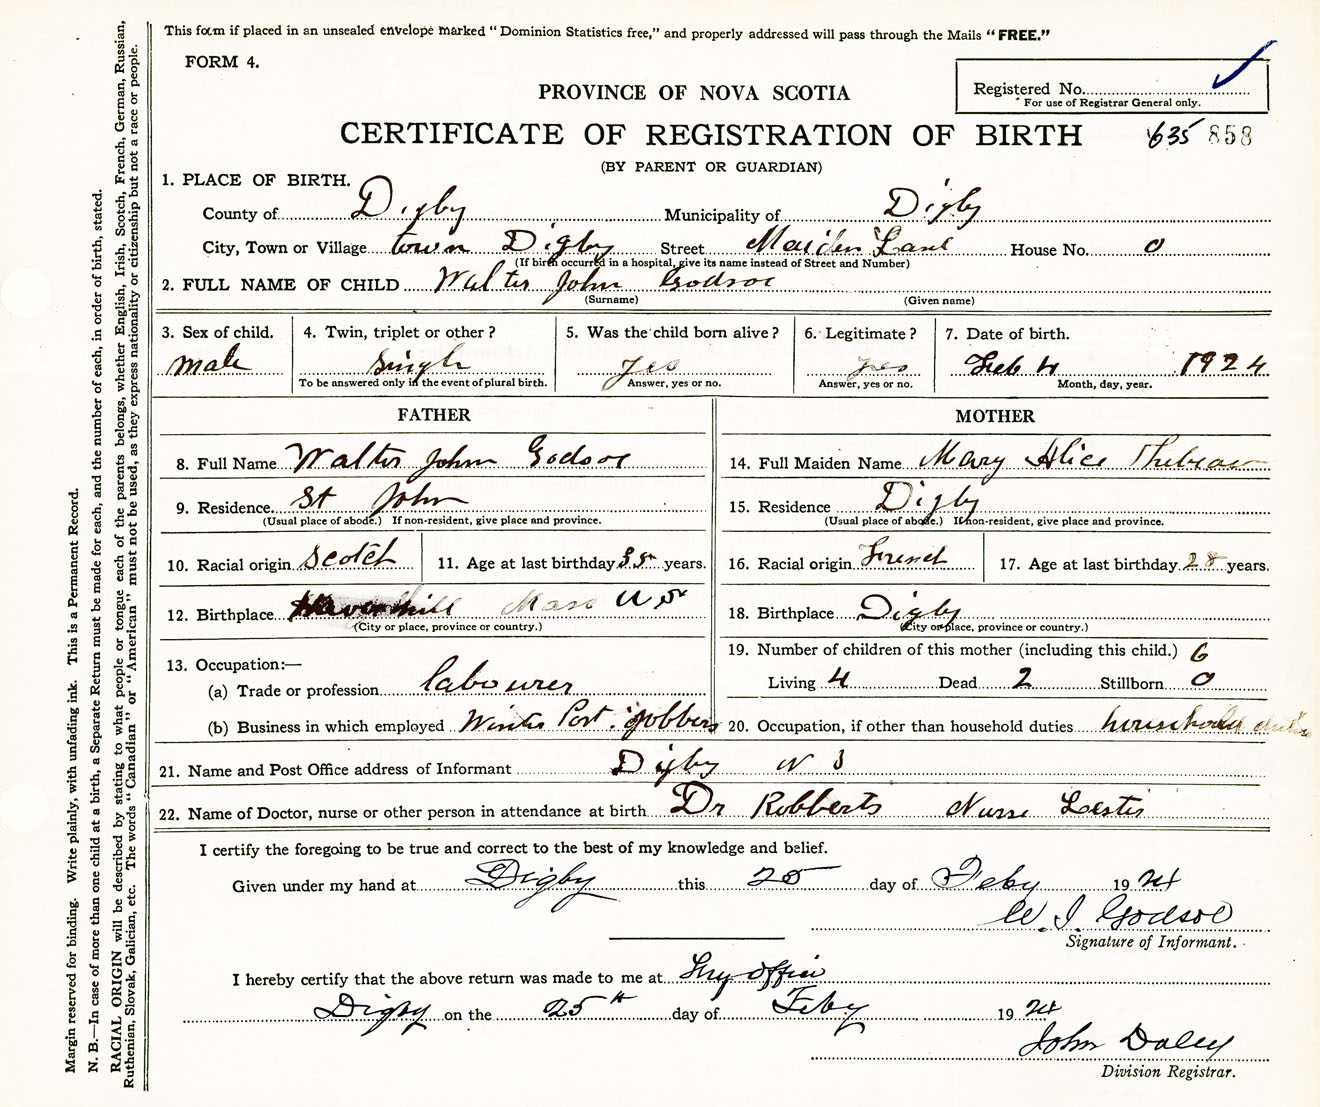 This form if placed in an unsealed envelope marked "Dominion Statistics free," and properly addressed will pass through the Mails "FREE."
FORM 4.
Registered No.
For use of Registrar General only.
PROVINCE OF NOVA SCOTIA
CERTIFICATE OF REGISTRATION OF BIRTH 635 858
(BY PARENT OR GUARDIAN)
1. PLACE OF BIRTH.
County of Digby Municipality of Digby
City, Town or Village town Digby Street Maiden Lane House No. 0
(If birth occurred in a hospital, give its name instead of Street and Number)
2. FULL NAME OF CHILD Walter John Godsoe
(Surname) (Given name)
3. Sex of child. 4. Twin, triplet or other? 5. Was the child born alive? 6. Legitimate? 7. Date of birth.
male single yes yes Feb 4 1924
To be answered only in the event of plural birth. Answer, yes or no. Answer, yes or no. Month, day, year.
FATHER
8. Full Name Walter John Godsoe
9. Residence St John
(Usual place of abode.) If non-resident, give place and province.
10. Racial origin Scotch 11. Age at last birthday 35 years.
12. Birthplace Haverhill Mass U S
(City or place, province or country.)
13. Occupation:—
(a) Trade or profession labourer
(b) Business in which employed Winter Port jobbers
MOTHER
14. Full Maiden Name Mary Alice
15. Residence Digby
(Usual place of abode.) If non-resident, give place and province.
16. Racial origin French 17. Age at last birthday 28 years.
18. Birthplace Digby
(City or place, province or country.)
19. Number of children of this mother (including this child.) 6
Living 4 Dead 2 Stillborn 0
20. Occupation, if other than household duties household duties
21. Name and Post Office address of Informant Digby N S
22. Name of Doctor, nurse or other person in attendance at birth Dr Robberts Nurse Lester
I certify the foregoing to be true and correct to the best of my knowledge and belief.
Given under my hand at Digby this 25 day of Feby 1924
W. J. Godsoe
Signature of Informant.
I hereby certify that the above return was made to me at my office
Digby on the 25th day of Feby 1924
John Daley
Division Registrar.
Margin reserved for binding. Write plainly, with unfading ink. This is a Permanent Record.
N. B.—In case of more than one child at a birth, a Separate Return must be made for each, and the number of each, in order of birth, stated.
RACIAL ORIGIN will be described by stating to what people or tongue each of the parents belongs, whether English, Irish, Scotch, French, German, Russian,
Ruthenian, Slovak, Galician, etc. The words "Canadian" or "American" must not be used, as they express nationality or citizenship but not a race or people.